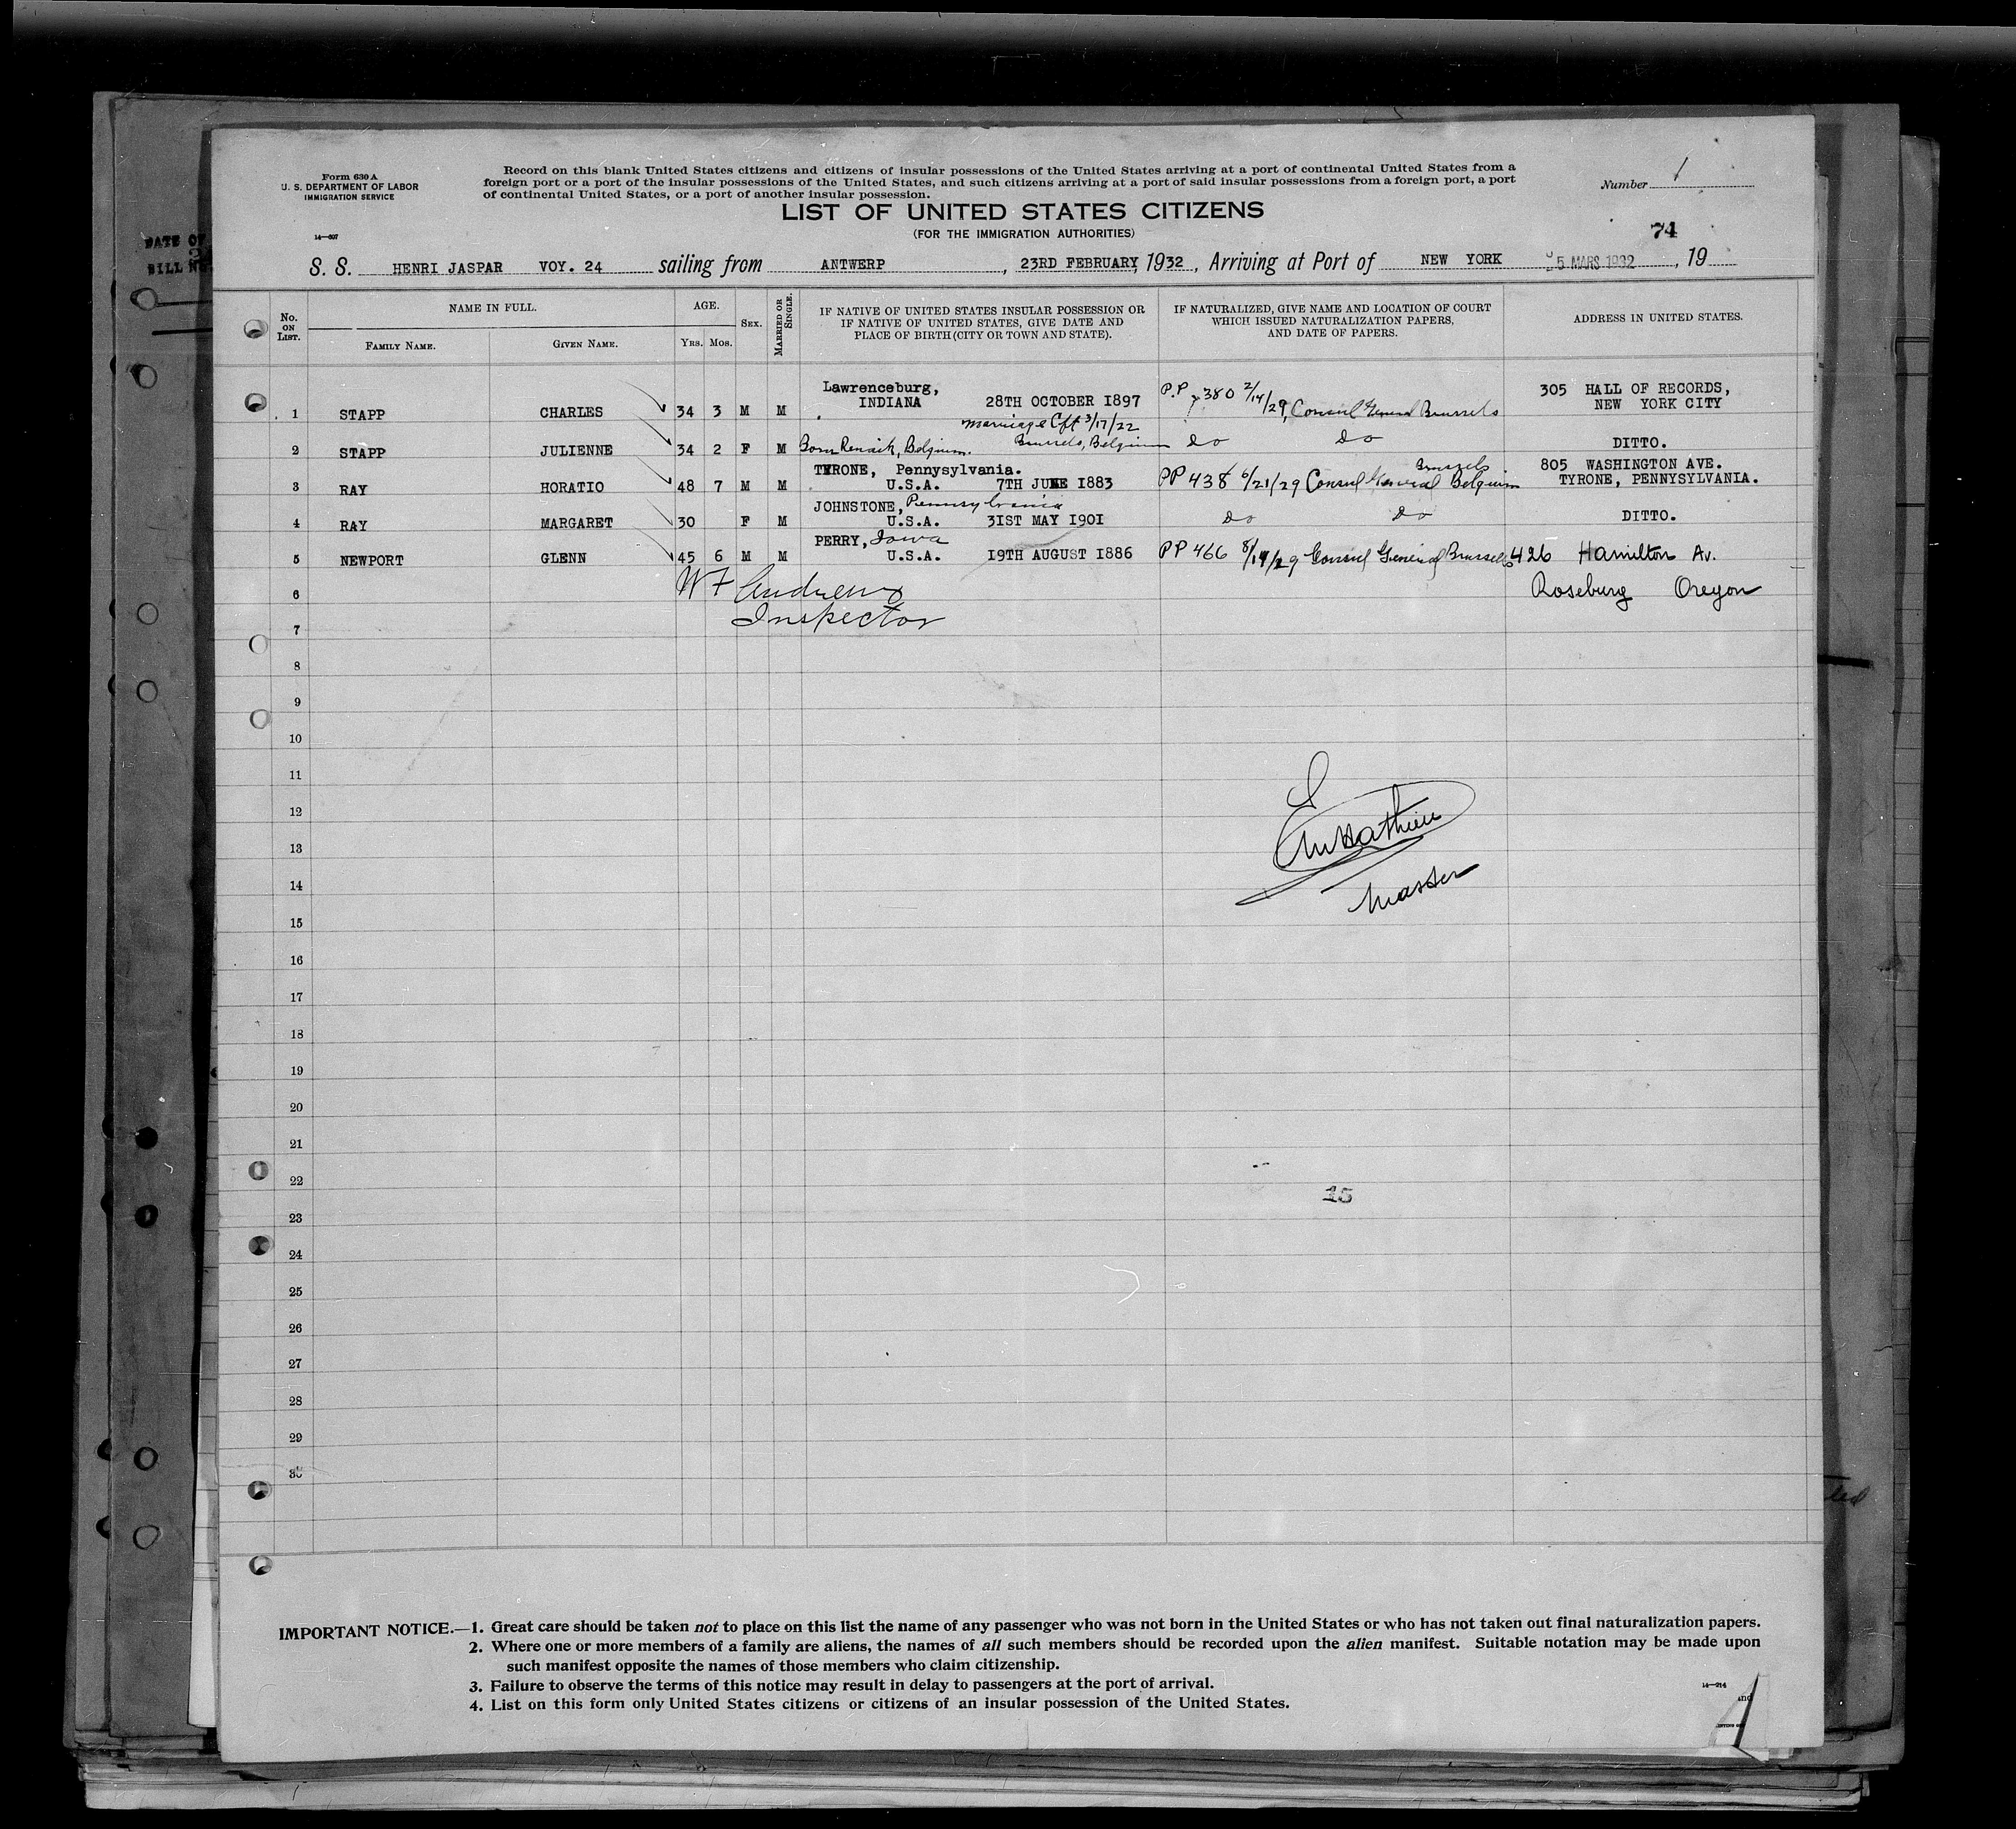 Form 630 A
U. S. DEPARTMENT OF LABOR
IMMIGRATION SERVICE
14—607
Record on this blank United States citizens and citizens of insular possessions of the United States arriving at a port of continental United States from a
foreign port or a port of the insular possessions of the United States, and such citizens arriving at a port of said insular possessions from a foreign port, a port
of continental United States, or a port of another insular possession.
Number 1
LIST OF UNITED STATES CITIZENS
(FOR THE IMMIGRATION AUTHORITIES)
74
DATE OF
BILL NO.
S. S. HENRI JASPAR VOY. 24 sailing from ANTWERP, 23RD FEBRUARY, 1932, Arriving at Port of NEW YORK 5 MARS 1932, 19
No. ON LIST.
NAME IN FULL.
FAMILY NAME.
GIVEN NAME.
AGE.
YRS. MOS.
SEX.
MARRIED OR SINGLE.
IF NATIVE OF UNITED STATES INSULAR POSSESSION OR
IF NATIVE OF UNITED STATES, GIVE DATE AND
PLACE OF BIRTH (CITY OR TOWN AND STATE).
IF NATURALIZED, GIVE NAME AND LOCATION OF COURT
WHICH ISSUED NATURALIZATION PAPERS,
AND DATE OF PAPERS.
ADDRESS IN UNITED STATES.
Lawrenceburg,
1 STAPP CHARLES 34 3 M M INDIANA 28TH OCTOBER 1897 P.P 380 2/14/29, Consul General Brussels 305 HALL OF RECORDS,
NEW YORK CITY
marriage Cft 3/17/22
Brussels, Belgium
2 STAPP JULIENNE 34 2 F M Born Renaix, Belgium. do do DITTO.
TYRONE, Pennysylvania.
3 RAY HORATIO 48 7 M M U.S.A. 7TH JUNE 1883 PP 438 6/21/29 Consul General Brussels Belgium 805 WASHINGTON AVE.
TYRONE, PENNSYLVANIA.
JOHNSTONE, Pennsylvania
4 RAY MARGARET 30 F M U.S.A. 31ST MAY 1901 do do DITTO.
PERRY, Iowa
5 NEWPORT GLENN 45 6 M M U.S.A. 19TH AUGUST 1886 PP 466 8/14/29 Consul General Brussels 426 Hamilton Av.
6 W F Andrews Roseburg Oregon
Inspector
7
8
9
10
11
12
13
14
Master
15
16
17
18
19
20
21
22
15
23
24
25
26
27
28
29
30
IMPORTANT NOTICE.—1. Great care should be taken not to place on this list the name of any passenger who was not born in the United States or who has not taken out final naturalization papers.
2. Where one or more members of a family are aliens, the names of all such members should be recorded upon the alien manifest. Suitable notation may be made upon
such manifest opposite the names of those members who claim citizenship.
3. Failure to observe the terms of this notice may result in delay to passengers at the port of arrival.
4. List on this form only United States citizens or citizens of an insular possession of the United States.
14—214